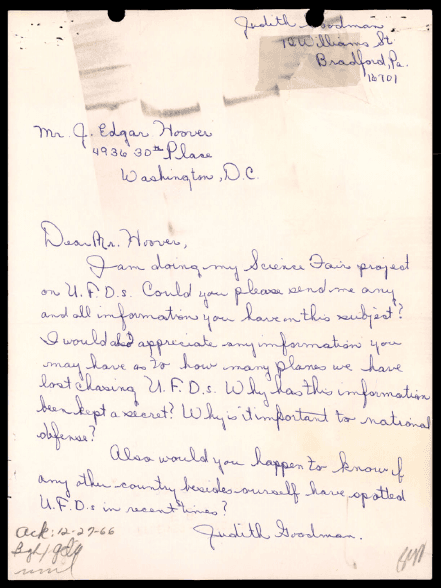 Judith Goodman
12 Williams St
Bradford, Pa.
16701
Mr. J. Edgar Hoover
4936 30th Place
Washington, D.C.
Dear Mr. Hoover,
I am doing my Science Fair project
on U.F.O.s. Could you please send me any
and all information you have on this subject?
I would also appreciate any information you
may have as to how many planes we have
lost chasing U.F.O.s. Why has this information
been kept a secret? Why is it important to national
defense?
Also would you happen to know if
any other country besides ourself have spotted
U.F.O.s in recent times?
Judith Goodman.
ack: 12-27-66